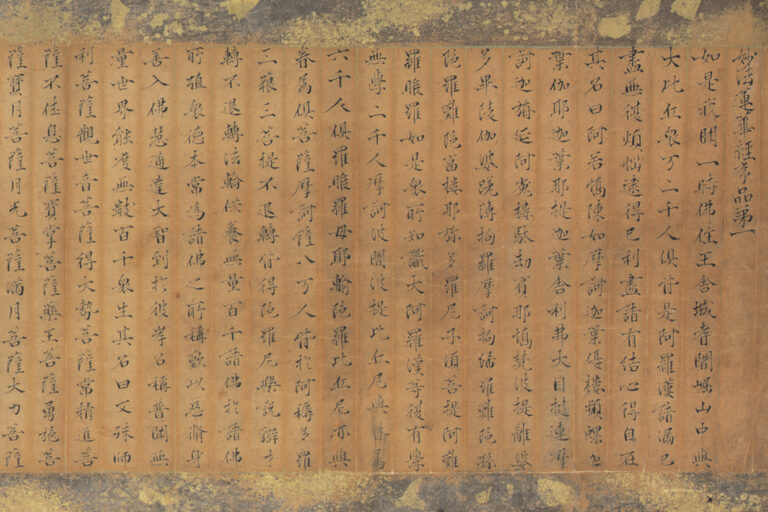 妙法蓮華經序品第一
如是我聞一時佛住王舍城耆闍崛山中與
大比丘眾万二千人俱皆是阿羅漢諸漏已
盡無復煩惱逮得己利盡諸有結心得自在
其名曰阿若憍陳如摩訶迦葉優樓頻螺迦
葉伽耶迦葉那提迦葉舍利弗大目揵連摩
訶迦旃延阿㝹樓馱劫賓那憍梵波提離婆
多畢陵伽婆蹉薄拘羅摩訶拘絺羅難陀孫
陀羅難陀富樓那弥多羅尼子須菩提阿難
羅睺羅如是眾所知識大阿羅漢等復有學
無學二千人摩訶波闍波提比丘尼與眷屬
六千人俱羅睺羅母耶輸陀羅比丘尼亦與
眷屬俱菩薩摩訶薩八万人皆於阿耨多羅
三藐三菩提不退轉皆得陀羅尼樂說辯才
轉不退轉法輪供養無量百千諸佛於諸佛
所殖眾德本常為諸佛之所稱歎以慈脩身
善入佛慧通達大智到於彼岸名稱普聞無
量世界能度無數百千眾生其名曰文殊師
利菩薩觀世音菩薩得大勢菩薩常精進菩
薩不休息菩薩寶掌菩薩藥王菩薩勇施菩
薩寶月菩薩月光菩薩滿月菩薩大力菩薩